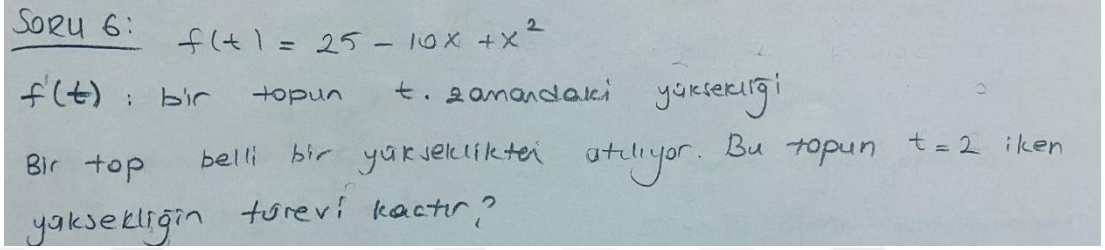 SORU 6: f(t) = 25 - 10x + x²
f'(t) : bir topun t. zamandaki yüksekliği
Bir top belli bir yükseklikten atılıyor. Bu topun t = 2 iken
yüksekliğin türevi kaçtır?